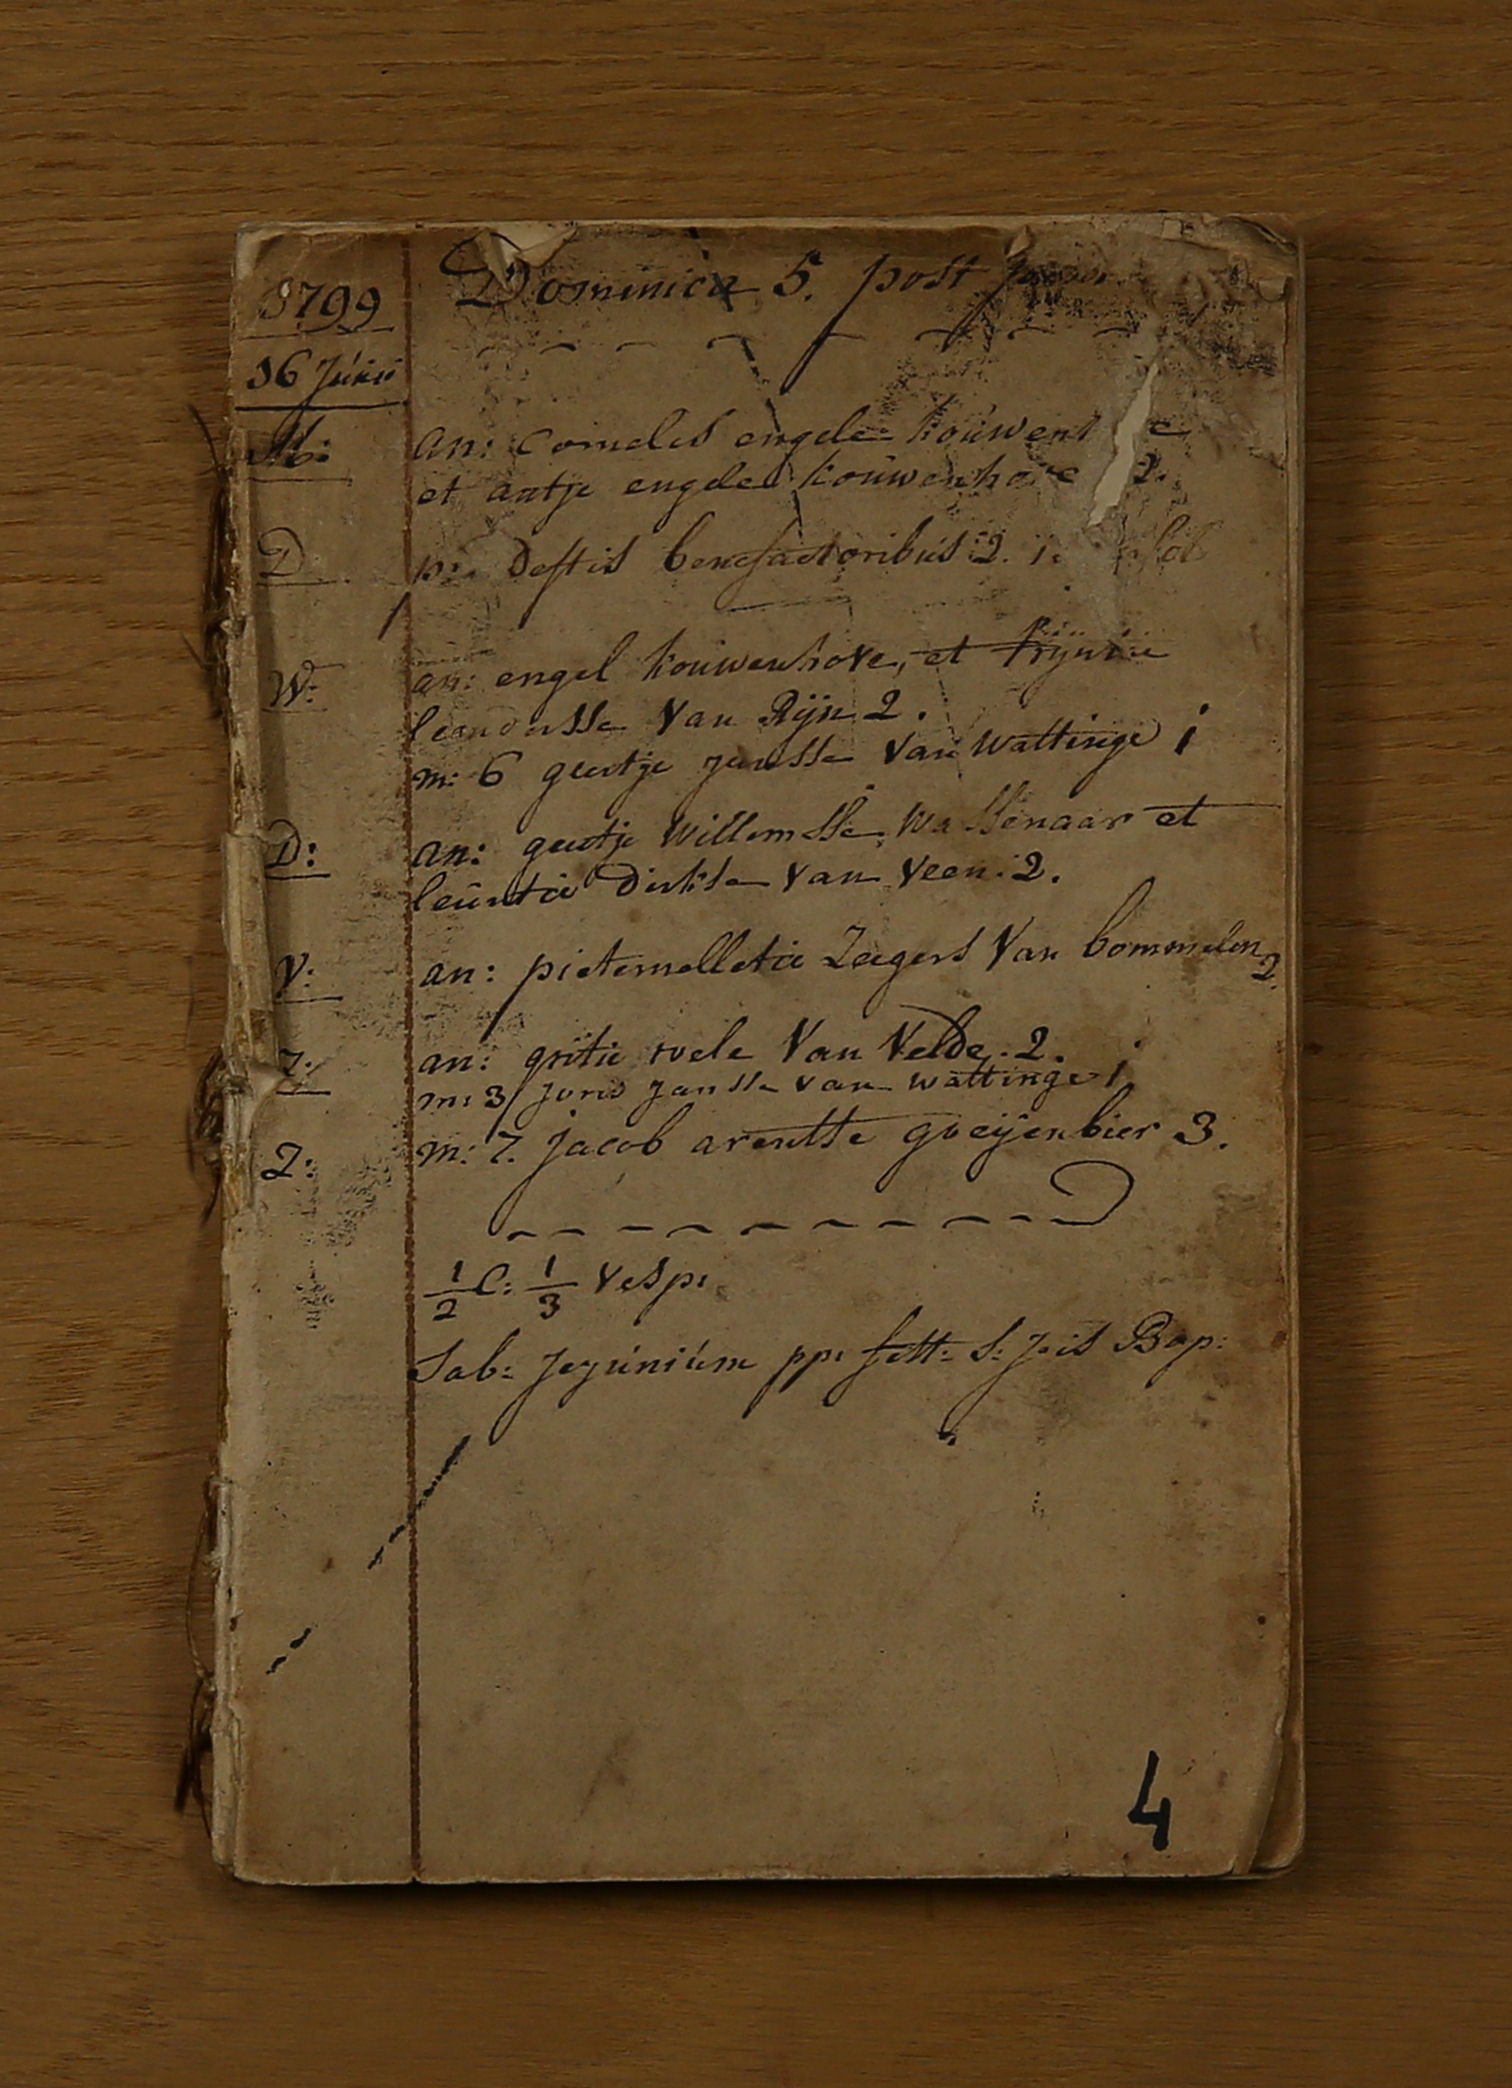 1799 Dominica 5. post
16 Junii
M: an: Cornelis engele kouwenhove
et antje engele kouwenhove 2.
D p: Deftis benefactoribus 2. 1.
W: an: engel kouwenhove, et Trijntie
leendersse Van Rijn 2.
m: 6 geertje Jansse Van Wattinge j
D: an: geertje Willemsse Wassenaar et
leuntie Dirkse Van Veen. 2.
V: an: pieternelletie Zeegers Van bommelen 2.
Z: an: gritie roele Van Velde. 2.
m: 3 Joris Jansse van wattinge j
Z: m: 7. Jacob arentse goeijenbier 3.
1/2 C: 1/3 Vesp:
Sab: Jejunium pp: fest: S: Jois Bap:
4